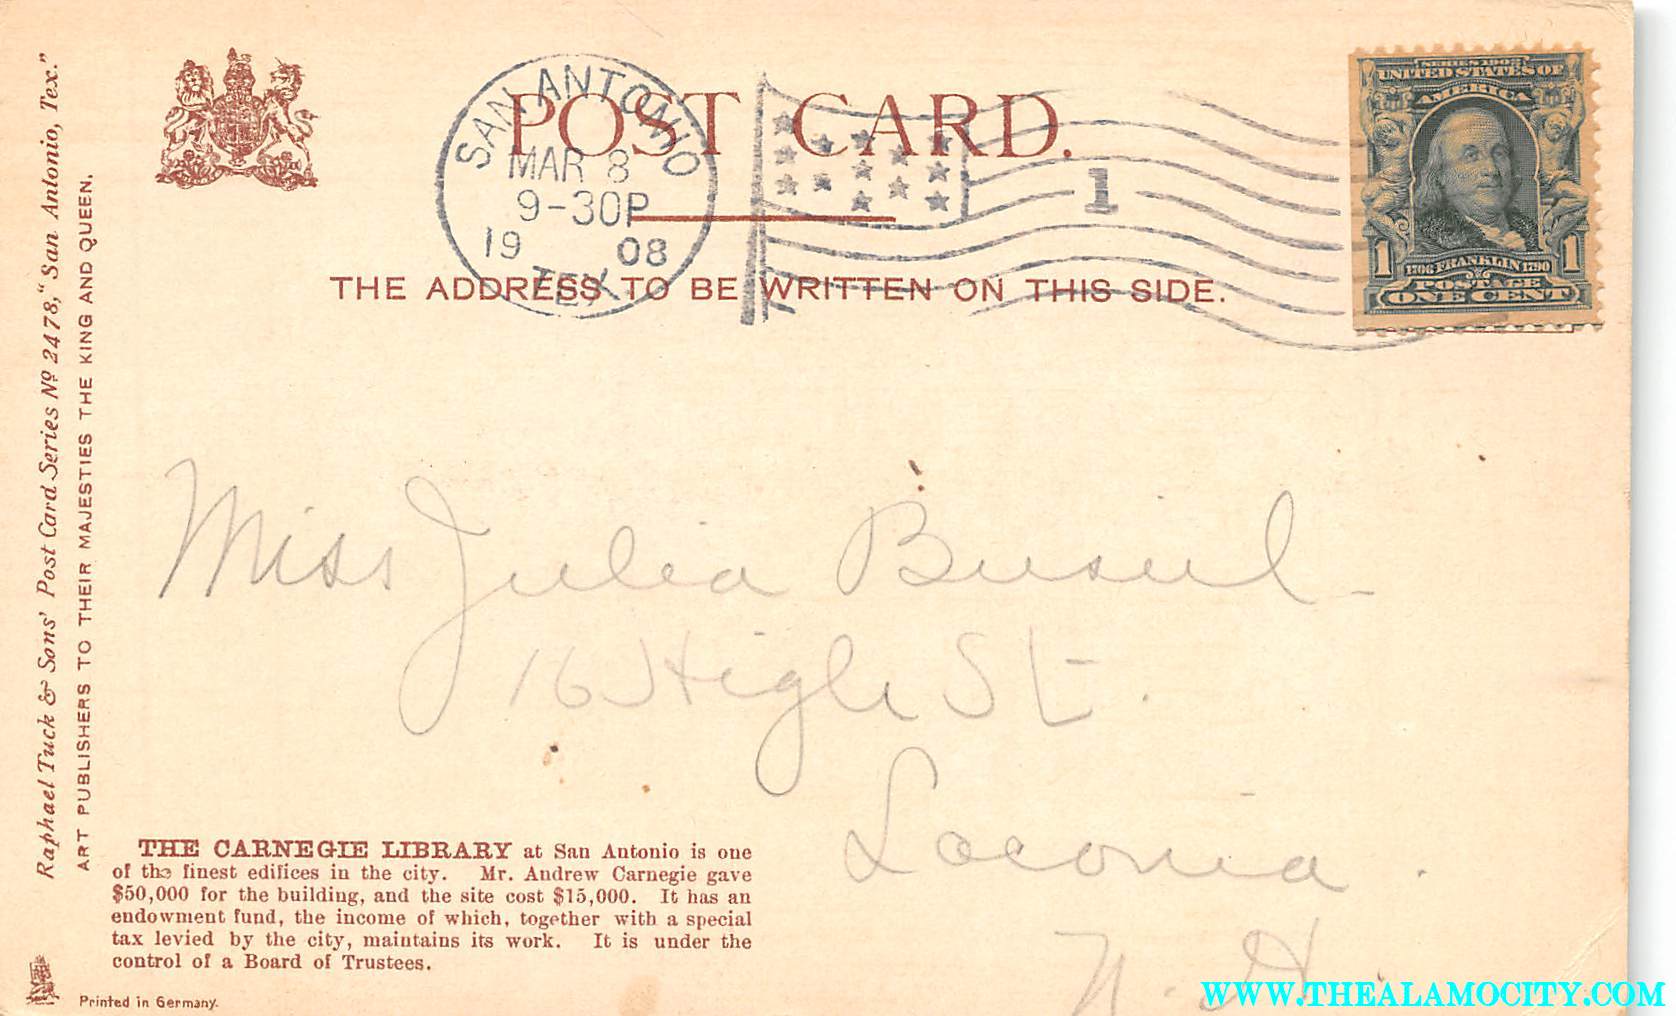 Raphael Tuck & Sons' Post Card Series No 2478, "San Antonio, Tex."
ART PUBLISHERS TO THEIR MAJESTIES THE KING AND QUEEN.
POST CARD.
SAN ANTONIO
MAR 8
9-30P
19 08
TEX
1
THE ADDRESS TO BE WRITTEN ON THIS SIDE.
SERIES 1902
UNITED STATES OF
AMERICA
1 1706 FRANKLIN 1790 1
POSTAGE
ONE CENT
Miss Julia Busiel
16 High St.
Laconia.
N. H.
THE CARNEGIE LIBRARY at San Antonio is one
of the finest edifices in the city. Mr. Andrew Carnegie gave
$50,000 for the building, and the site cost $15,000. It has an
endowment fund, the income of which, together with a special
tax levied by the city, maintains its work. It is under the
control of a Board of Trustees.
Printed in Germany.
WWW.THEALAMOCITY.COM